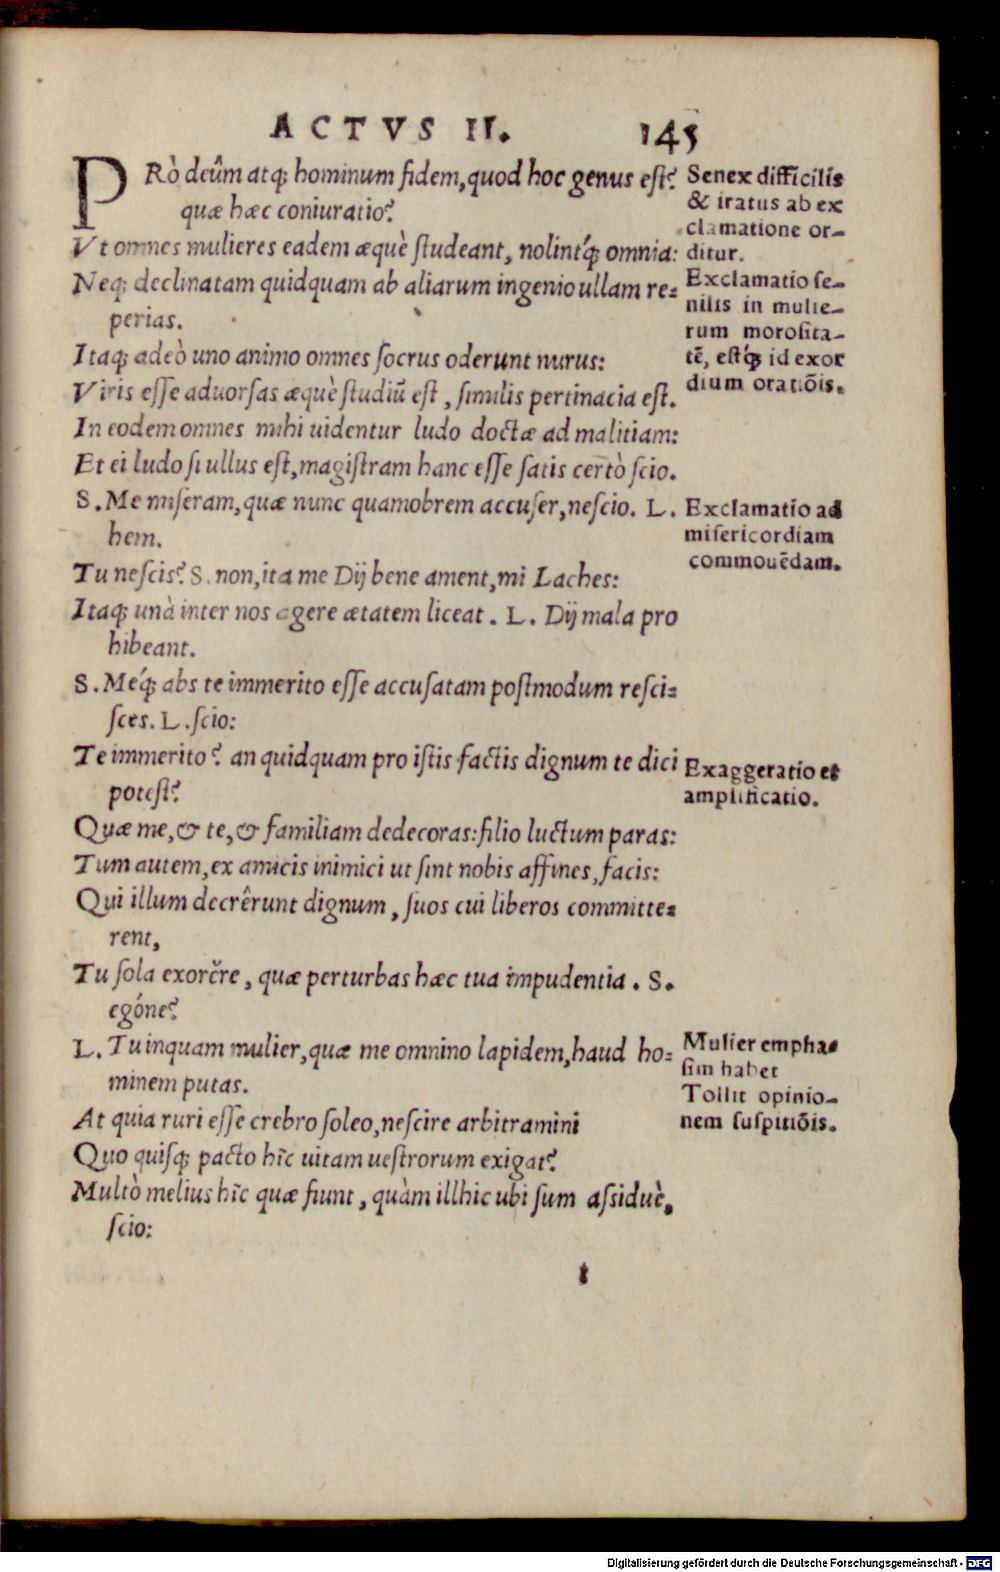 ACTVS II. 145
PRò deûm atq; hominum fidem, quod hoc genus eſt?
quæ hæc coniuratio?
Vt omnes mulieres eadem æquè ſtudeant, nolintq́; omnia:
Neq; declinatam quidquam ab aliarum ingenio ullam re=
perias.
Itaq; adeò uno animo omnes ſocrus oderunt nurus:
Viris eſſe aduorſas æquè ſtudiũ eſt, ſimilis pertinacia eſt.
In eodem omnes mihi uidentur ludo doctæ ad malitiam:
Et ei ludo ſi ullus eſt, magiſtram hanc eſſe ſatis certò ſcio.
S. Me miſeram, quæ nunc quamobrem accuſer, neſcio. L.
hem.
Tu neſcis? S. non, ita me Dij bene ament, mi Laches:
Itaq; unà inter nos agere ætatem liceat. L. Dij mala pro
hibeant.
S. Meq́; abs te immerito eſſe accuſatam poſtmodum reſci=
ſces. L. ſcio:
Te immerito? an quidquam pro iſtis factis dignum te dici
poteſt?
Quæ me, & te, & familiam dedecoras: filio luctum paras:
Tum autem, ex amicis inimici ut ſint nobis affines, facis:
Qui illum decrêrunt dignum, ſuos cui liberos committe=
rent,
Tu ſola exorere, quæ perturbas hæc tua impudentia. S.
egóne?
L. Tu inquam mulier, quæ me omnino lapidem, haud ho=
minem putas.
At quia ruri eſſe crebro ſoleo, neſcire arbitramini
Quo quiſq; pacto hîc uitam ueſtrorum exigat?
Multò melius hîc quæ fiunt, quàm illhic ubi ſum aſſiduè,
ſcio:
t
Senex difficilis
& iratus ab ex
clamatione or-
ditur.
Exclamatio ſe-
nilis in mulie-
rum moroſita-
tē, eſtq́; id exor
dium oratiōis.
Exclamatio ad
miſericordiam
commouēdam.
Exaggeratio et
amplificatio.
Mulier empha=
ſim habet
Tollit opinio-
nem ſuſpitiōis.
Digitalisierung gefördert durch die Deutsche Forschungsgemeinschaft - DFG